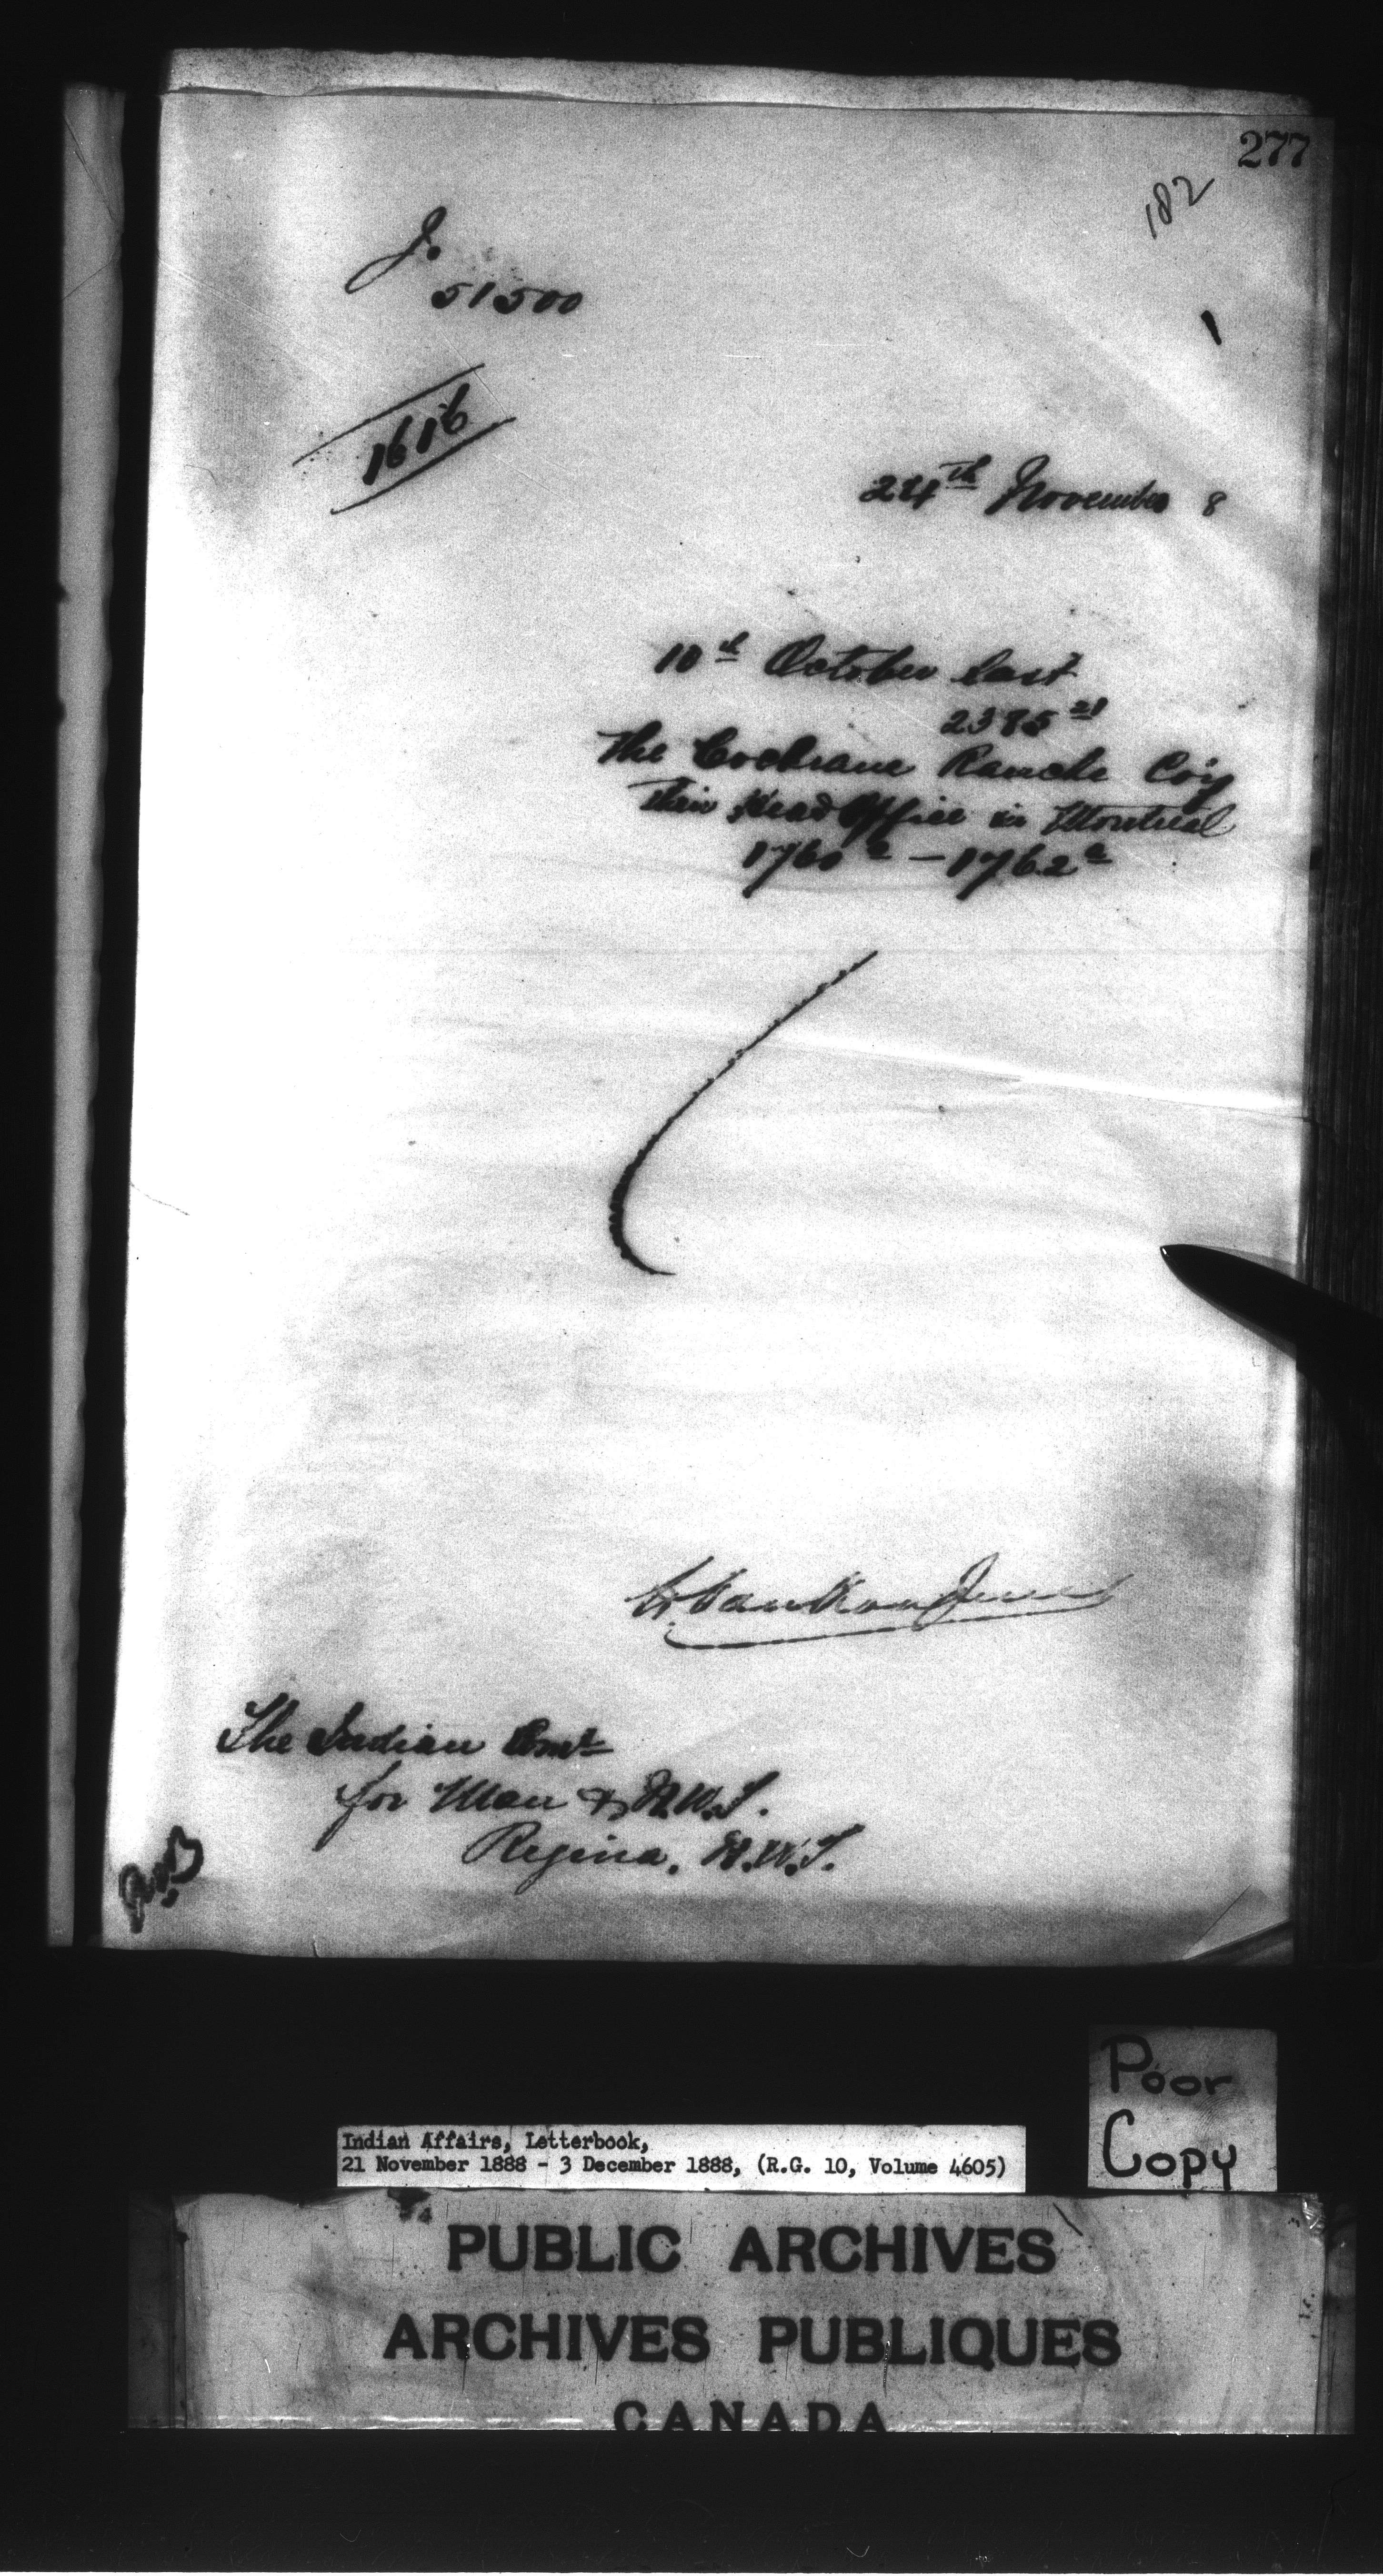 277
182
J.
51500
1616
24th November 8
10th October last
2385
The Cochrane Ranche Co'y
their Head Office in Montreal
1760a - 1762a
L. Vankoughnet
The Indian Comr
for Man & N.W.T.
Regina, N.W.T.
Poor
Copy
Indian Affairs, Letterbook,
21 November 1888 - 3 December 1888, (R.G. 10, Volume 4605)
PUBLIC ARCHIVES
ARCHIVES PUBLIQUES
CANADA